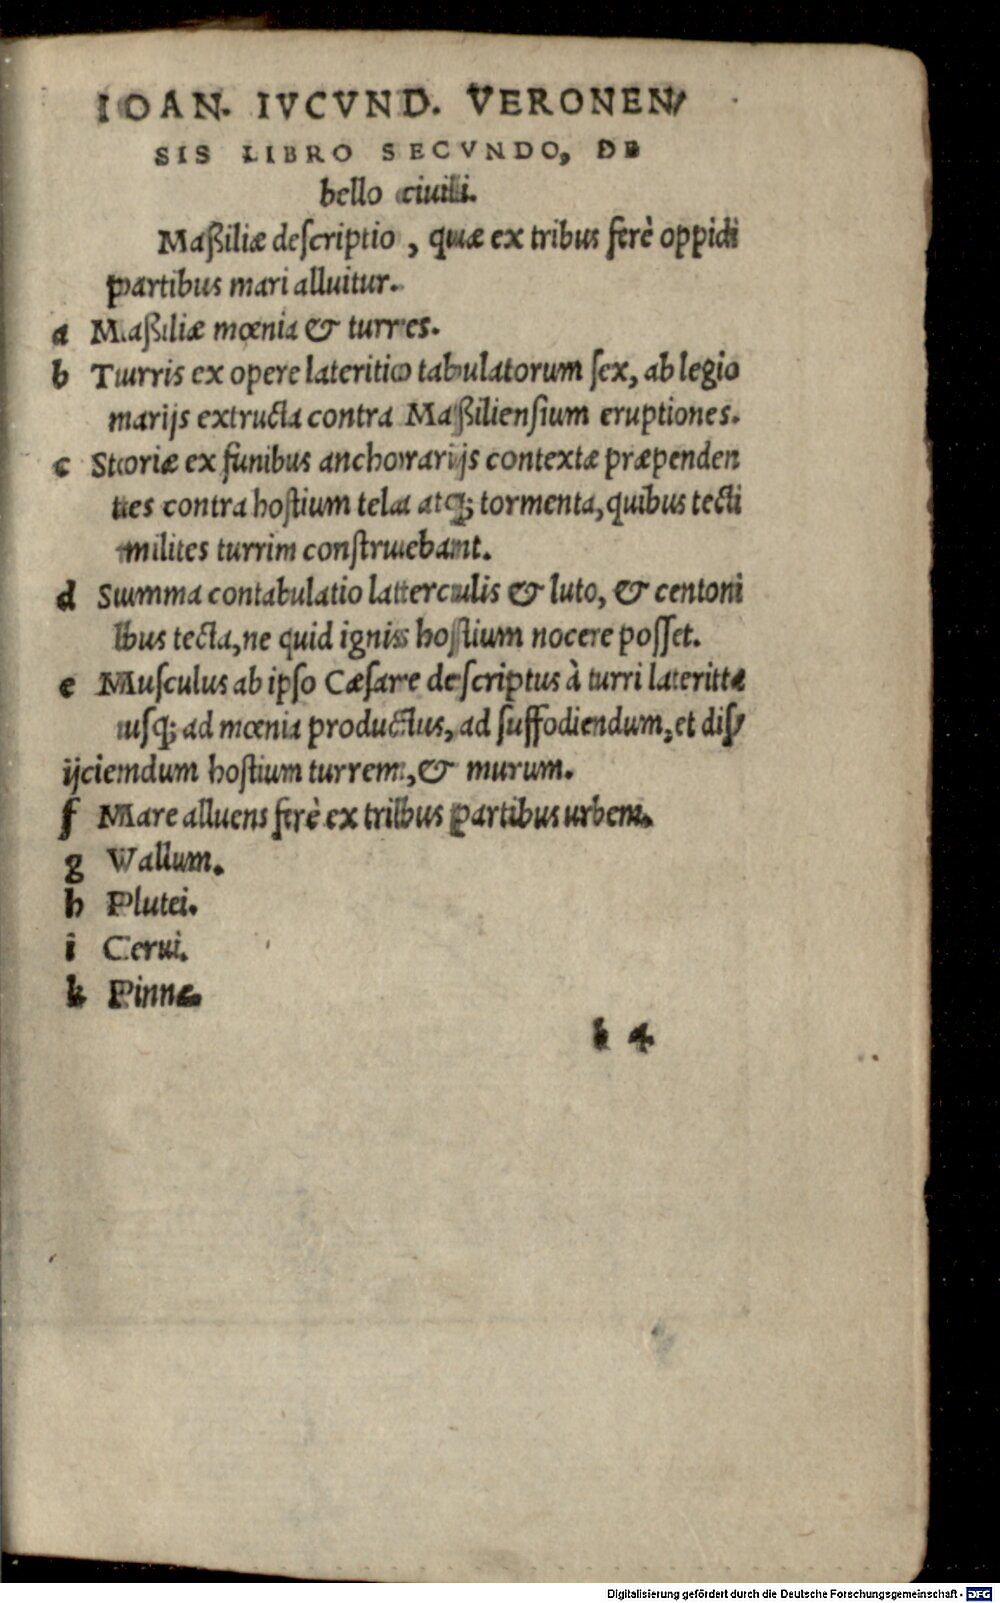 IOAN. IVCVND. VERONEN/
SIS LIBRO SECVNDO, DE
bello ciuili.
Maßiliæ deſcriptio, quæ ex tribus ferè oppidi
partibus mari alluitur.
a Maßiliæ mœnia & turres.
b Turris ex opere lateritio tabulatorum ſex, ab legio
marijs extructa contra Maßilienſium eruptiones.
c Storiæ ex funibus anchorarijs contextæ præpenden
tes contra hoſtium tela atq; tormenta, quibus tecti
milites turrim conſtruebant.
d Summa contabulatio laterculis & luto, & centoni
bus tecta, ne quid ignis hoſtium nocere poſſet.
e Muſculus ab ipſo Cæſare deſcriptus à turri lateritta
uſq; ad mœnia productus, ad ſuffodiendum, et diſ/
ijciendum hoſtium turrem, & murum.
f Mare alluens ferè ex tribus partibus urbem.
g Wallum.
h Plutei.
i Cerui.
k Pinnæ.
b 4
Digitalisierung gefördert durch die Deutsche Forschungsgemeinschaft - DFG